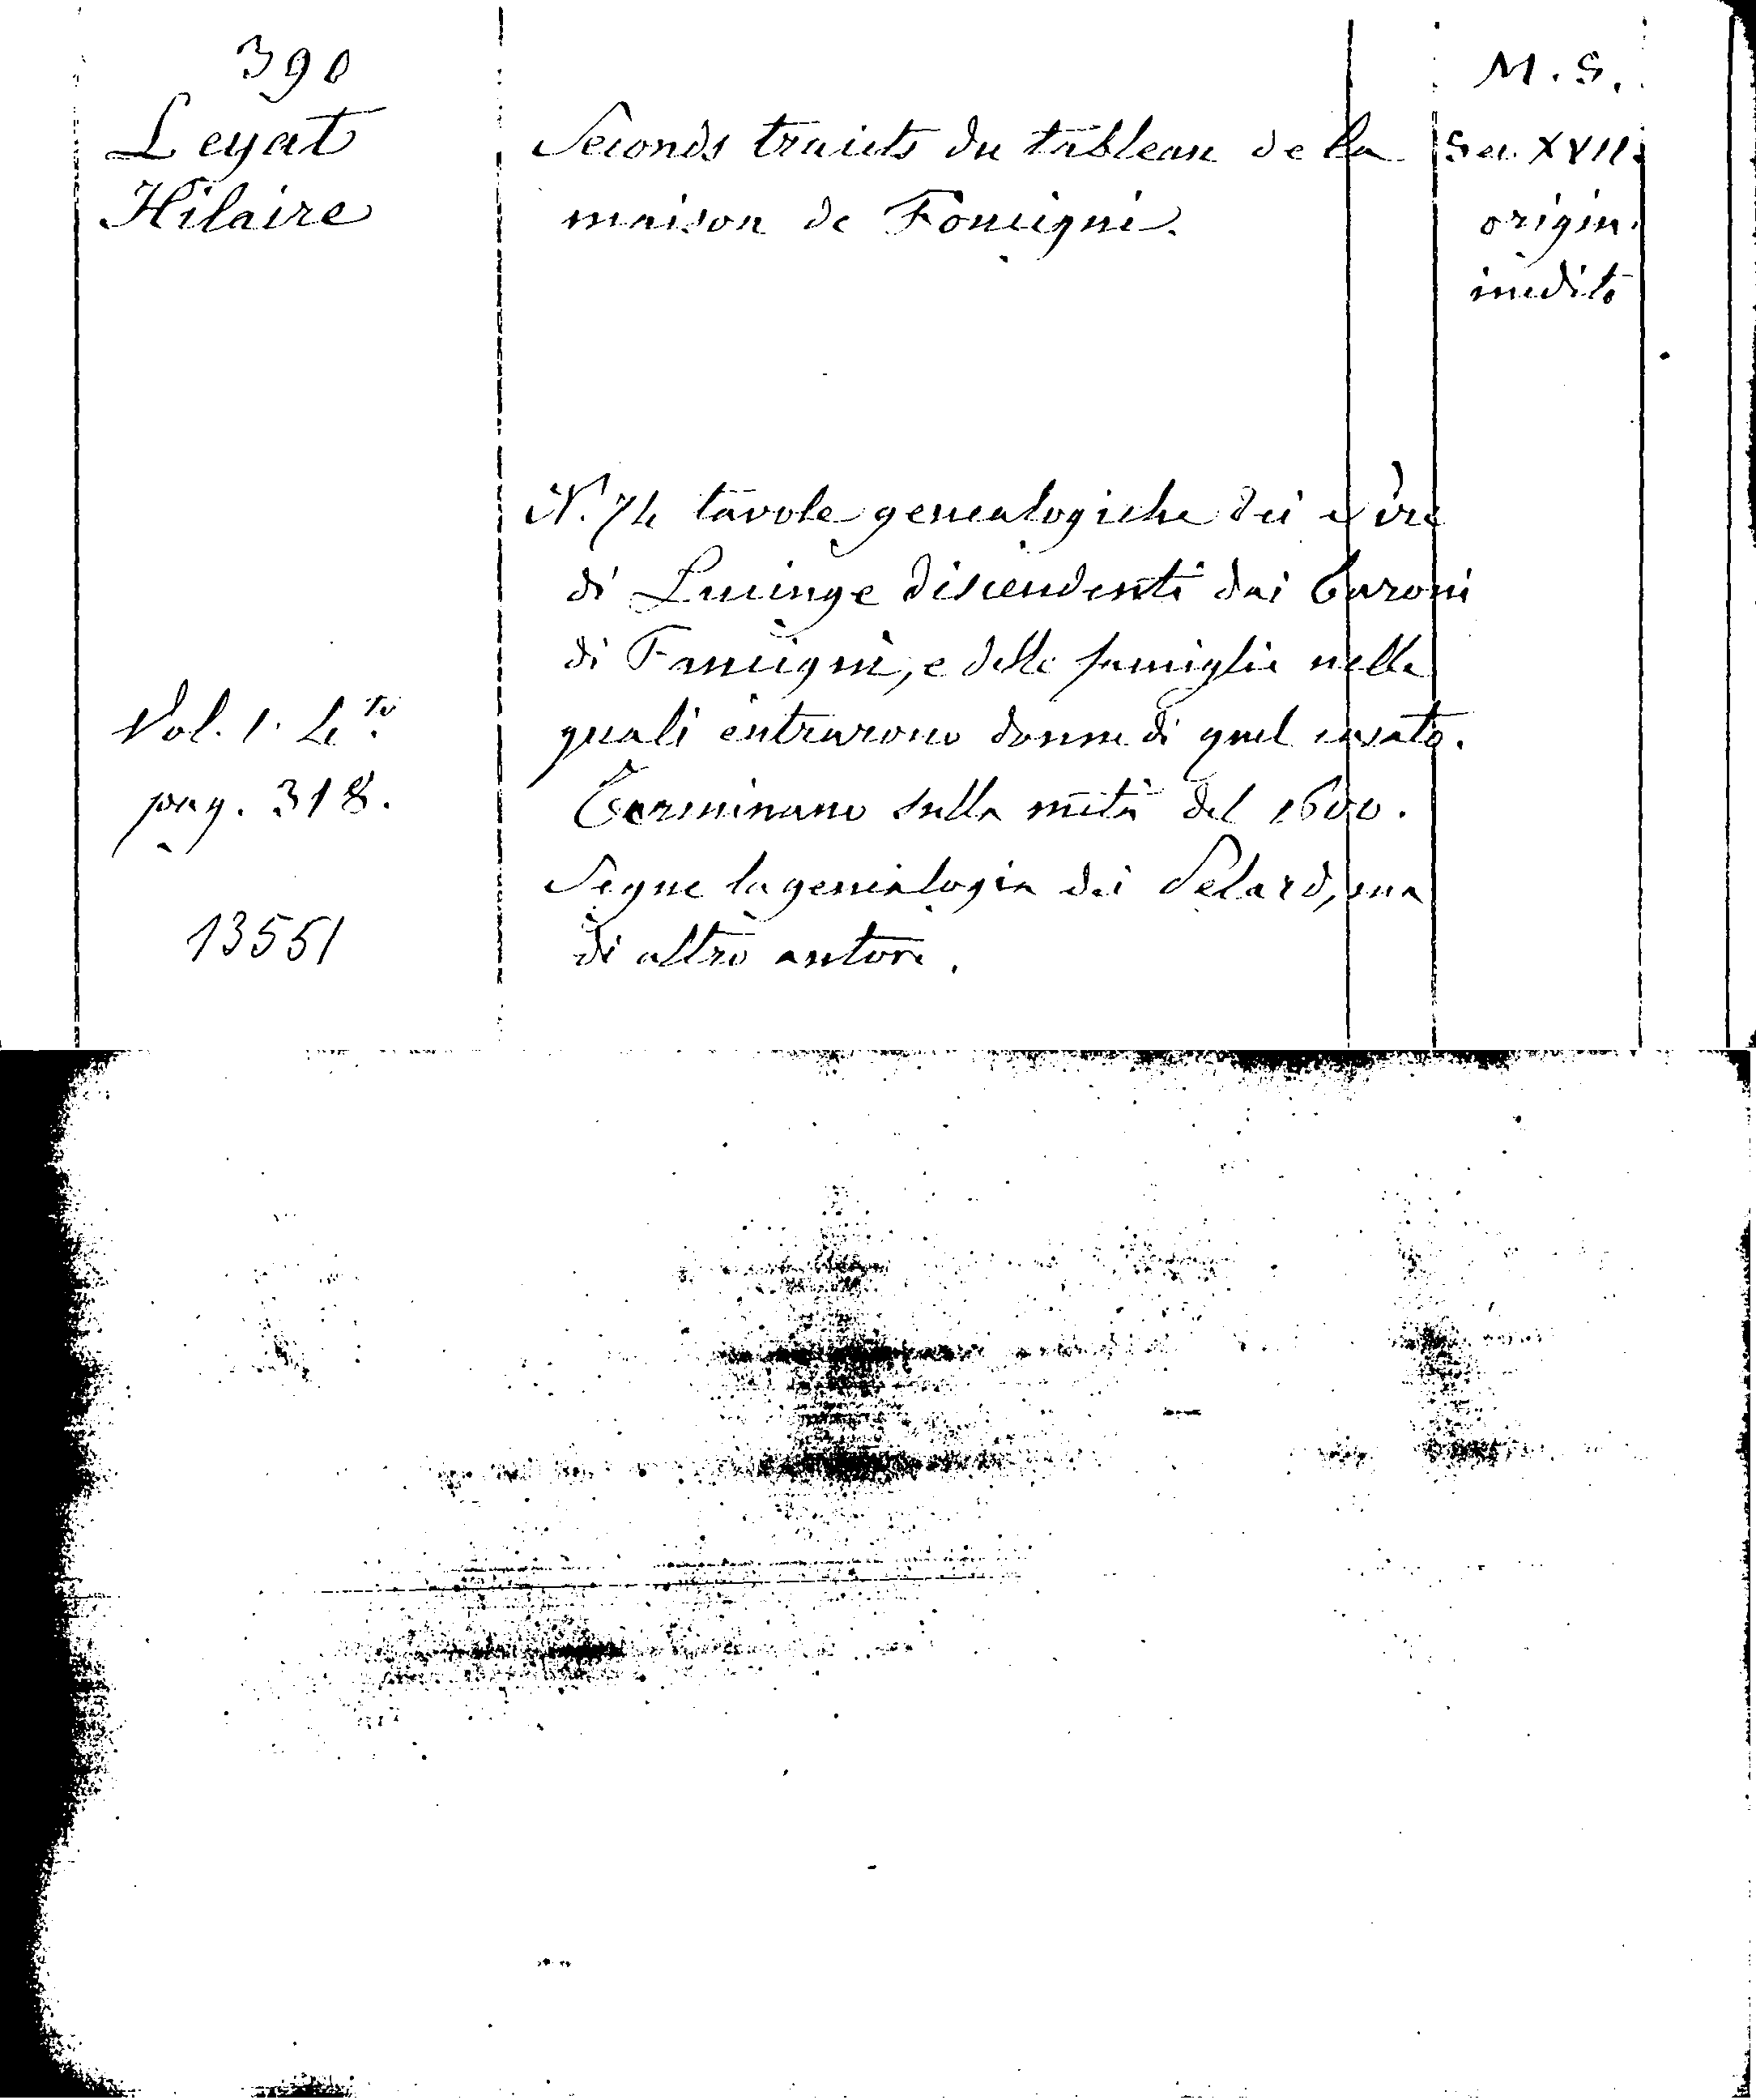 390
Leyat
Hilaire
Seconds traicts du tableau de la
maison de Foucigni.
M. S.
Sec. XVII.
origin.
inedito
N. 74 tavole genealogiche dei
di Lucinge discendenti dai baroni
di Faucigni, e delle famiglie nelle
quali entrarono donne di quel casato.
Terminano sulla metà del 1600.
Segue la genealogia dei Pelard, ma
di altro autore.
Vol. 1. 4.to
pag. 318.
13551